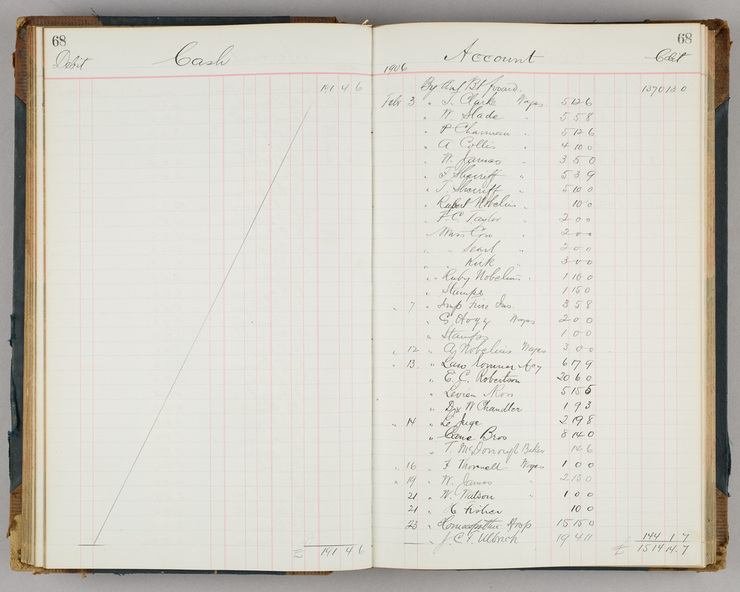 68
Debit Cash
191 4 6
£ 191 4 6
68
Account
1906
By Amt Bt forward 1370 13 0
Feb 3 " J. Clarke Wages 5 12 6
" W. Slade " 5 5 8
" P Charman " 5 12 6
" A Collis " 4 10 0
" W. James " 3 5 0
" F Sherriff " 5 3 9
" T. Sherriff " 5 10 0
" Rupert Nobelius " 10 0
" F C Taylor " 2 0 0
" " 2 0 0
" " Searl " 2 0 0
" " Kirk " 3 0 0
" Ruby Nobelius " 1 10 0
" Stamps 1 10 0
" 7 " Imp Fire Ins. 3 5 8
" G Hogg Wages 2 0 0
" Stamps 1 0 0
" 12 " Nobelius Wages 3 0 0
" 13 " Law Somner Acy 6 17 9
" E. C. Robertson 20 6 0
" 5 15 5
" W Chandler 1 9 3
" 14 " 2 19 8
" Bros 8 14 0
" T. McDonough Baker 12 6
" 16 " F Thornell Wages 1 0 0
" 19 " W. James " 2 13 0
21 " W. Watson " 1 0 0
21 " Fisher 10 0
23 " Homeopathic Hosp 15 15 0
" J. C. F. Ulbrich 19 4 11 144 1 7
£ 1514 14 7